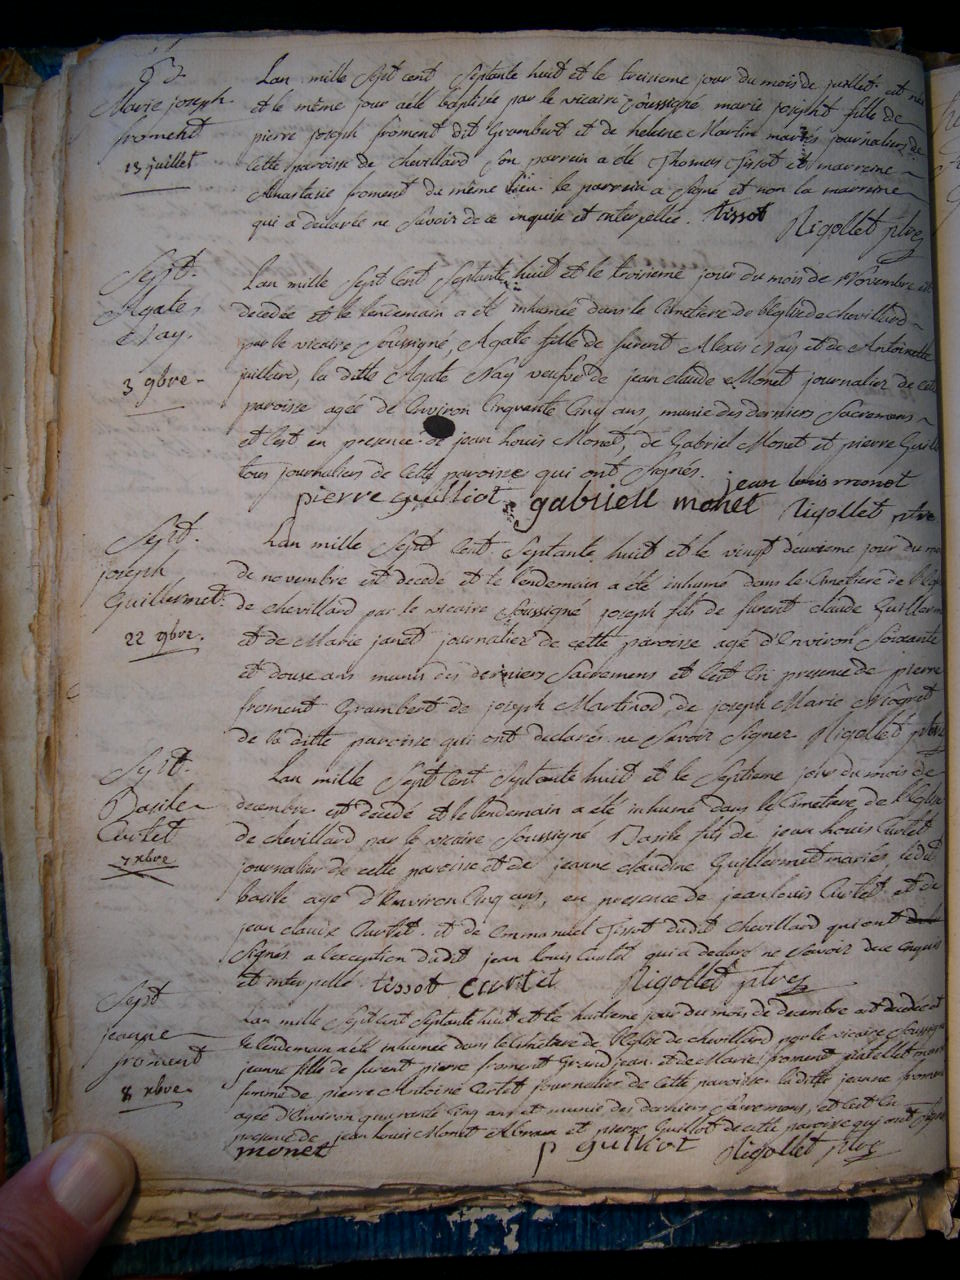 B.
Marie joseph
froment
13 juillet
Lan mille Sept cent Septante huit et le treisieme jour du mois de juillet est née
et le même jour a été baptisée par le vicaire soussigné marie joseph fille de
pierre joseph froment dit Grambert et de helene Martin mariés journaliers de
cette paroisse de chevillard Son parrein a été Thomas Tissot et marreine
Anastasie froment du même lieu le parrein a signé et non la marreine
qui a declaré ne Savoir de ce enquise et interpellée. tissot Nigollet ptre
Sept.
Agate
Nay.
3 9bre
Lan mille Sept Cent Septante huit et le troisieme jour du mois de Novembre est
decedée et le lendemain a été inhumée dans le Cimetiere de l'Eglise de chevillard
par le vicaire Soussigné, Agate fille de furent Alexis Nay et de Antoinette
juilleird, la ditte Agate Nay veufve de jean claude Monet journalier de cette
paroisse agée de Environ Cinquante Cinq ans, munie des derniers Sacremens
et c'est en presence de jean Louis Monet, de Gabriel Monet et pierre Guilliot
tous journaliers de Cette paroisse qui ont Signés. jean louis monet
pierre guilliot gabriell monet Nigollet ptre
Sept.
joseph
Guillermet.
22 9bre.
Lan mille Sept Cent Septante huit et le vingt deuxieme jour du mois
de novembre est decedé et le lendemain a été inhumé dans le Cimetiere de l'Eglise
de chevillard par le vicaire Soussigné joseph fils de furent claude Guillermet
et de Marie janet journalier de cette paroisse agé d'Environ Soixante
et douse ans munis des derniers Sacremens et c'est En presence de pierre
froment Grambert de joseph Martinod, de joseph Marie Niogret
de la ditte paroisse qui ont declarés ne Savoir Signer Nigollet ptre
Sept.
Basile
Curtet
7 xbre
Lan mille Sept Cent Septante huit et le Septieme jour du mois de
decembre est decedé et le lendemain a été inhumé dans le Cimetiere de l'Eglise
de chevillard par le vicaire Soussigné Basile fils de jean Louis Curtet
journalier de cette paroisse et de jeanne claudine Guillermet mariés, ledit
basile agé d'Environ Cinq ans, en presence de jean louis Curtet et de
jean claude Curtet. et de Emmanuel Tissot dudit chevillard qui ont
Signés a l'exception dudit jean louis Curtet qui a declaré ne Savoir de ce enquis
et interpellé tissot curtet Nigollet ptre
Sept
jeanne
froment
8 xbre
Lan mille Sept Cent Septante huit et le huitieme jour du mois de decembre est decedée et
le lendemain a été inhumée dans le Cimetiere de l'Eglise de chevillard par le vicaire Soussigné
jeanne fille de furent pierre froment Grand jean et de Marie froment
femme de pierre Antoine Curtet journalier de Cette paroisse laditte jeanne froment
agée d'Environ quarante Cinq ans et munie des derniers Sacremens, et c'est En
presence de jean louis Monet Abram et pierre Guilliot de cette paroisse qui ont Signé
monet p guilliot Nigollet ptre